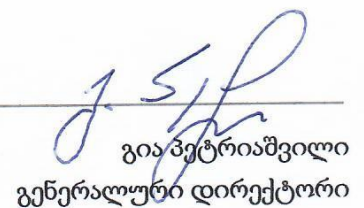 გია პეტრიაშვილი
გენერალური დირექტორი